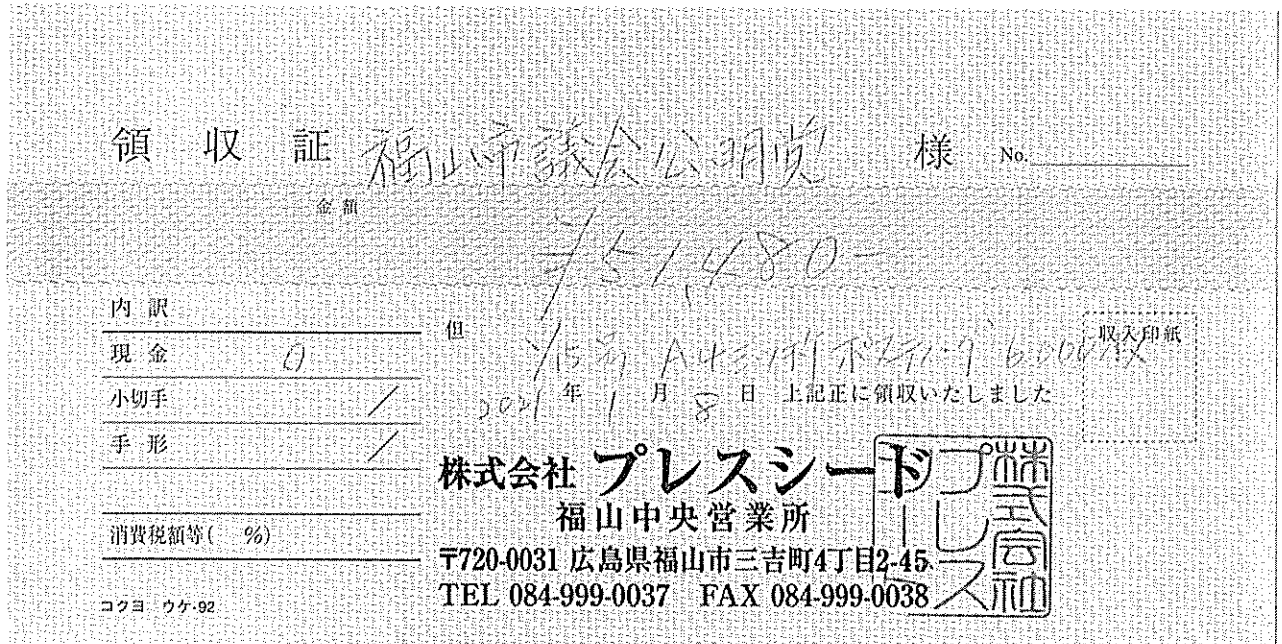 領収証 福山市議会公明党 様 No.
金額
¥51,480-
内訳
現金 0
小切手 /
手形 /
消費税額等( %)
コクヨ ウケ-92
但 1/15号 A4三ツ折ポスティング 6,000枚
収入印紙
2021年1月8日 上記正に領収いたしました
株式会社 プレスシード
福山中央営業所
〒720-0031 広島県福山市三吉町4丁目2-45
TEL 084-999-0037 FAX 084-999-0038
株式会社
プレス
シード